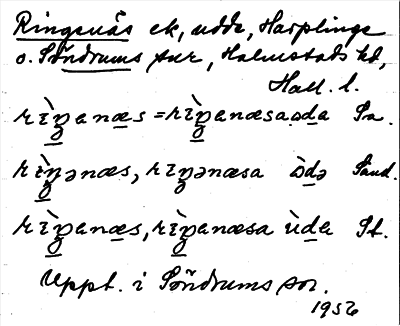 Ringenäs ek, udde, Harplinge
o. Söndrums snr, Halmstads hd,
Hall. l.
rìŋanæs = rìŋanæsa ɷda Sa.
rìŋənæs, rìŋənæsa òdə Sand.
rìŋanæs, rìŋanæsa ùda St.
Uppt. i Söndrums sn.
1956